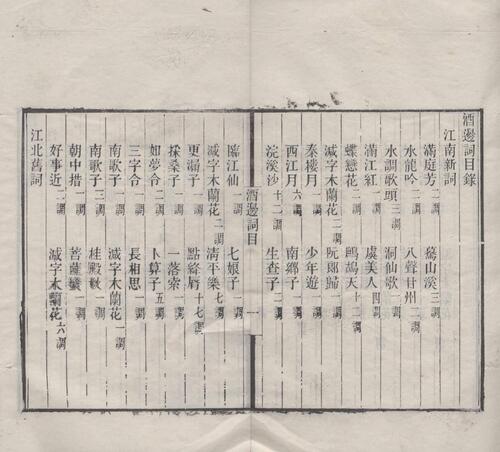 酒邊詞目錄
江南新詞
滿庭芳二調 驀山溪三調
水龍吟二調 八聲甘州二調
水調歌頭三調 洞仙歌一調
滿江紅一調 虞美人四調
蝶戀花二調 鷓鴣天十二調
減字木蘭花一調 阮郎歸一調
秦樓月一調 少年遊一調
西江月六調 南鄉子一調
浣溪沙十二調 生查子二調
酒邊詞目 一
臨江仙一調 七娘子一調
減字木蘭花二調 清平樂七調
更漏子一調 點絳脣十七調
採桑子一調 一落索一調
如夢令二調 卜算子五調
三字令一調 長相思一調
南歌子一調 減字木蘭花一調
南歌子三調 桂殿秋一調
朝中措一調 菩薩蠻一調
好事近二調 減字木蘭花六調
江北舊詞